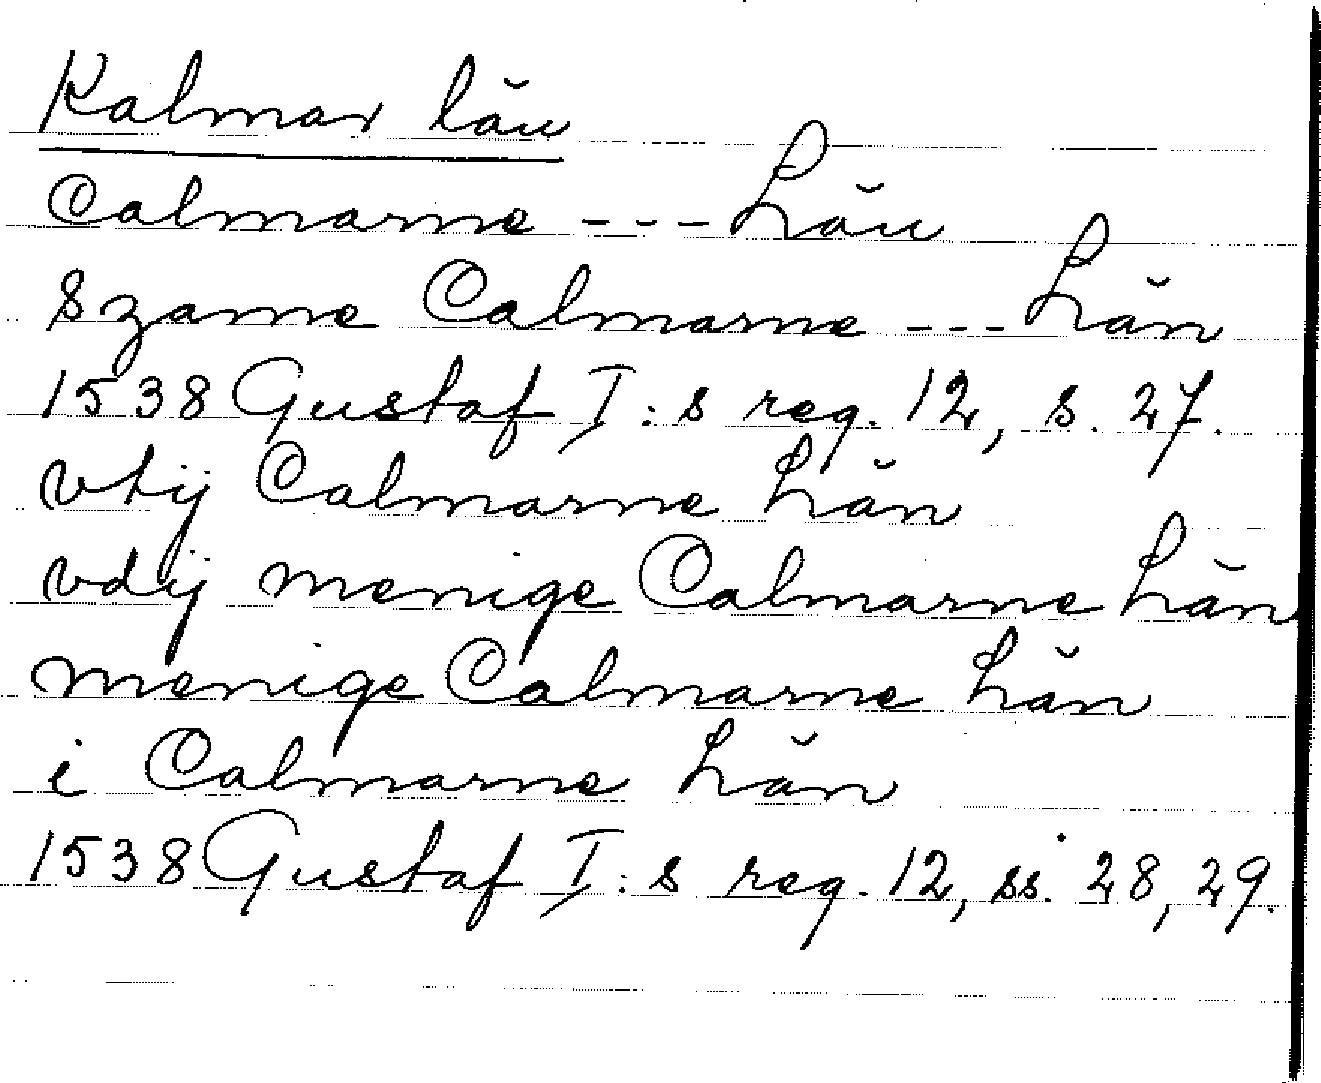 Kalmar län
Calmarne --- Län
szame Calmarne --- Län
1538 Gustaf I:s reg. 12, s. 27.
vtij Calmarne Län
vdij menige Calmarne Län
menige Calmarne Län
i Calmarne Län
1538 Gustaf I:s reg. 12, ss. 28, 29.